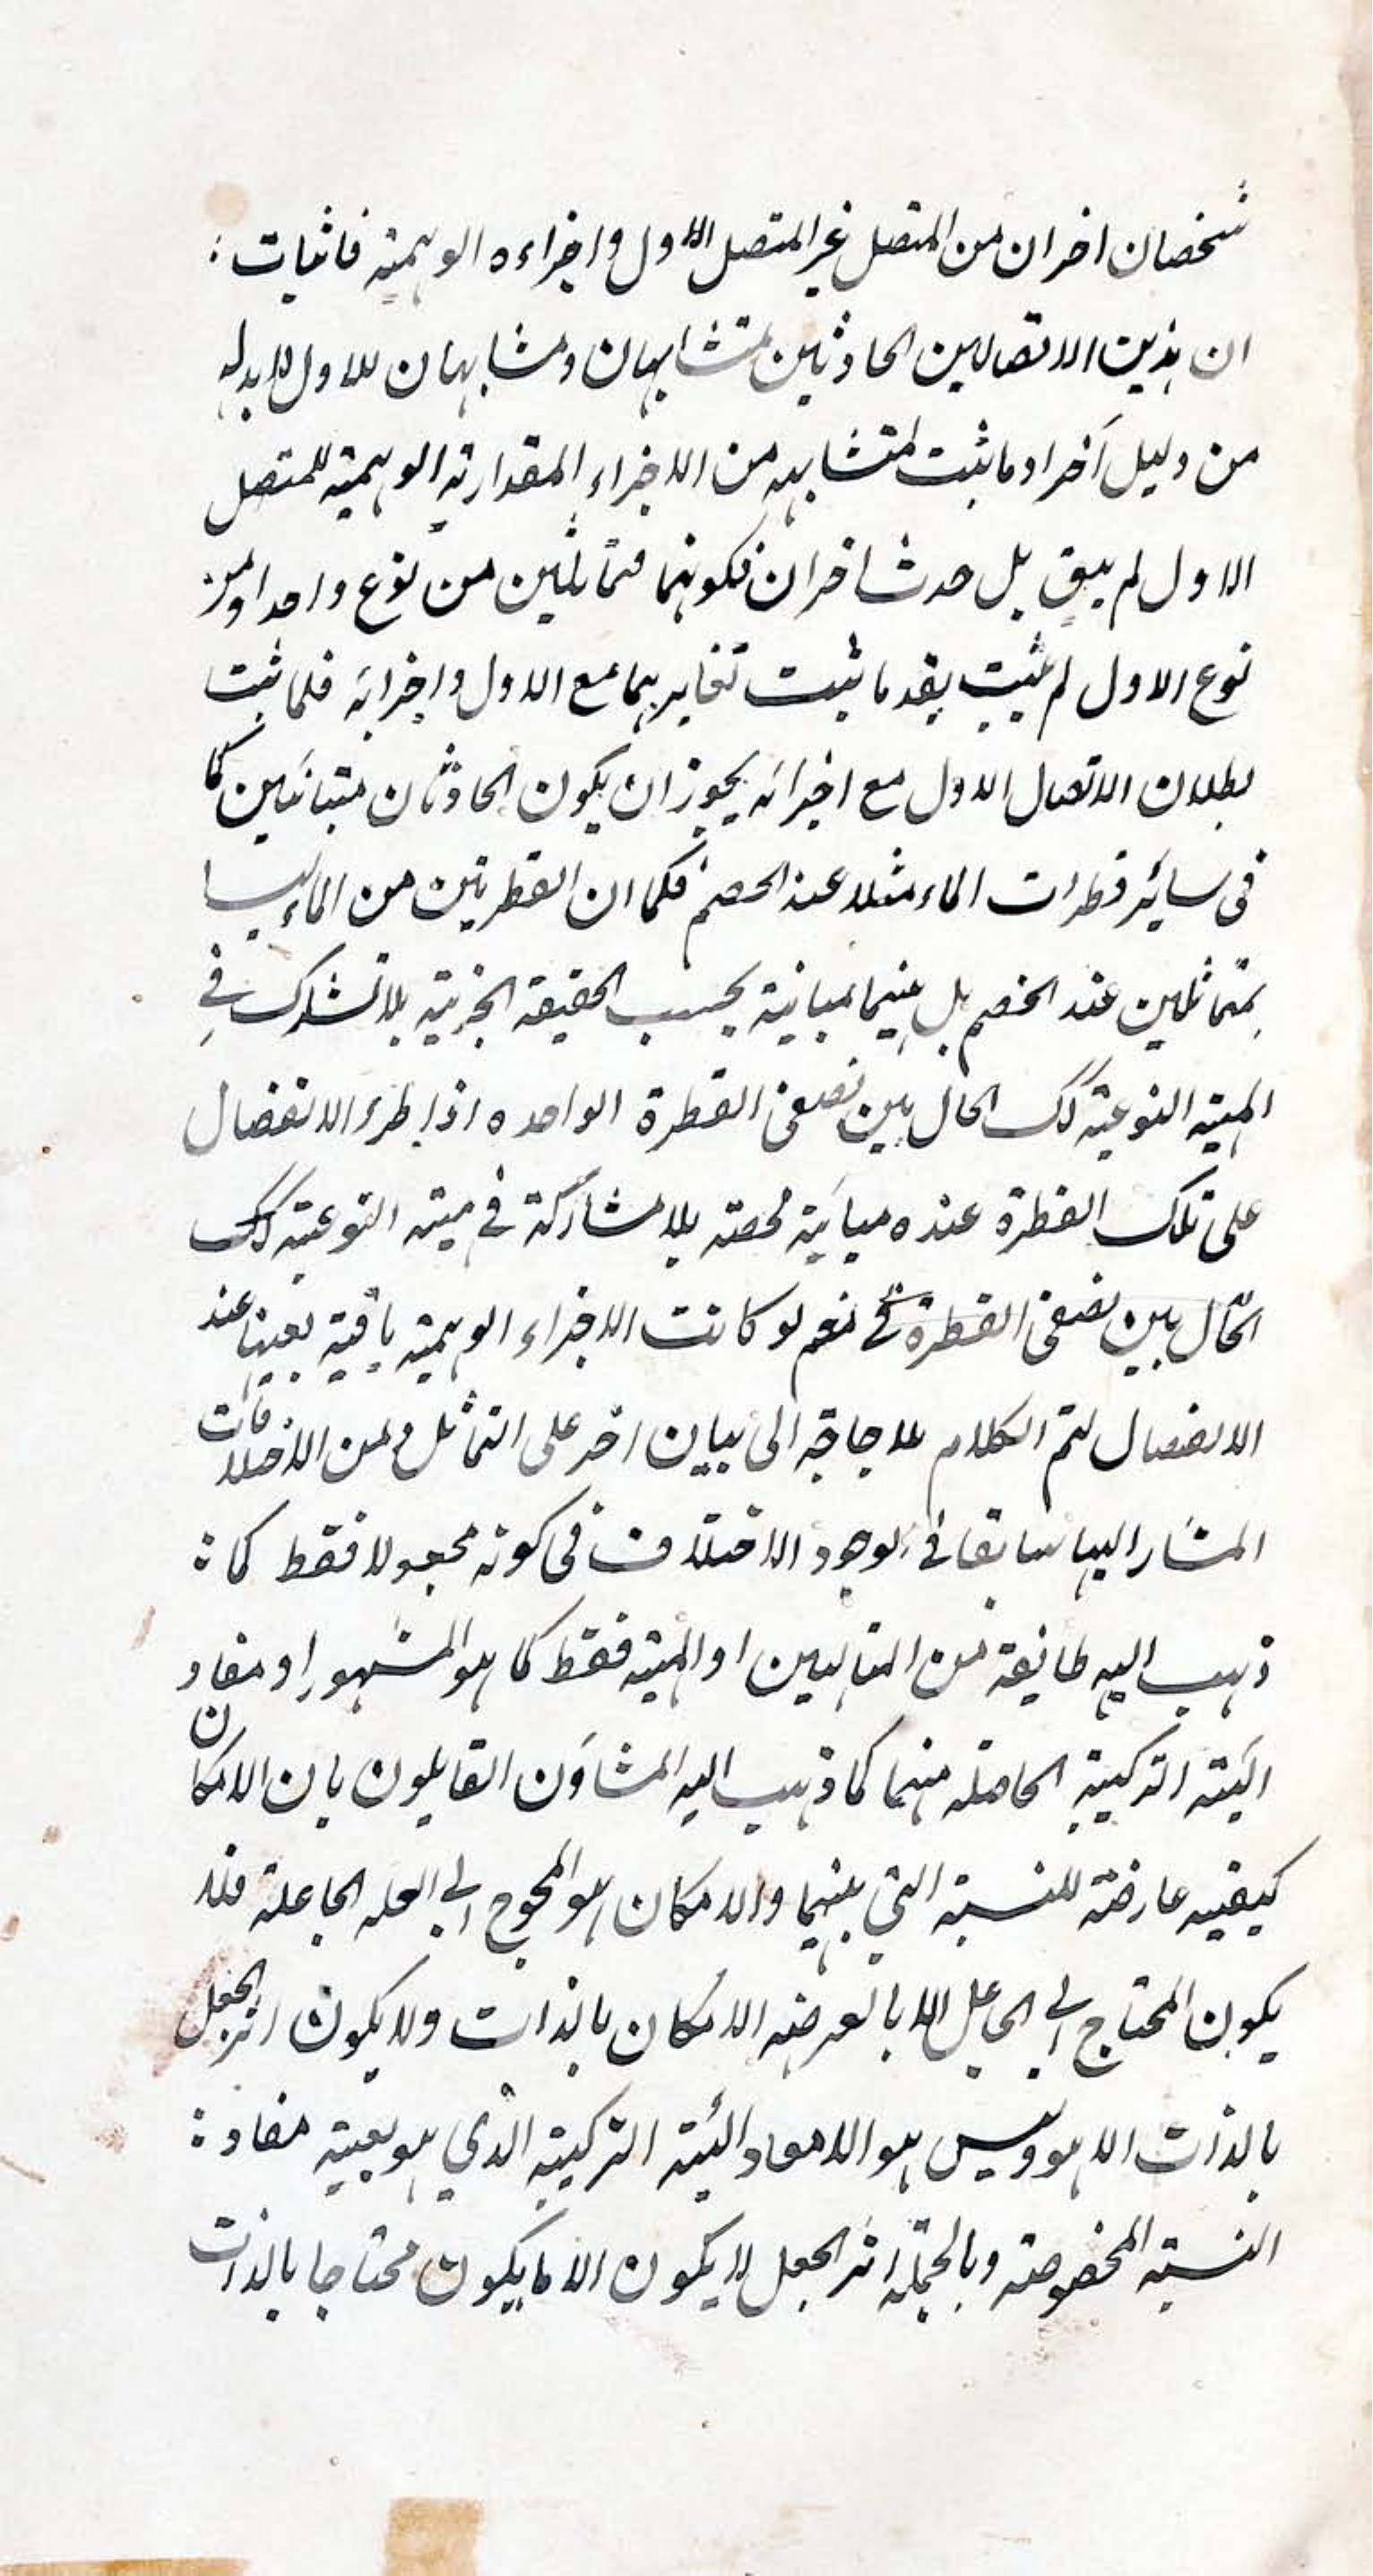 شخصان اخران من المتصل غير المتصل الاول واجزاءه الوهمية فاثبات
ان هذين الاتصالين الحادثين متشابهان ومشابهان للاول لابد له
من دليل آخر او ما ثبت تشابهه من الاجزاء المقدارية الوهمية للمتصل
الاول لم يبق بل حدث اخران فكونهما متماثلين من نوع واحد او من
نوع الاول لم يثبت بعد ما ثبت تغايرهما مع الاول واجزائه فلما ثبت
بطلان الاتصال الاول مع اجزائه يجوز ان يكون الحادثان متباينين كما
فى سائر قطرات الماء مثلا عند الخصم فكما ان القطرتين من الماء ليسا
بمتماثلين عند الخصم بل بينهما مباينة بحسب الحقيقة الجزئية بلا تشارك في
المهية النوعية كك الحال بين نصفى القطرة الواحده اذا طرء الانفصال
على تلك القطرة عنده مباينة محضة بلا مشاركة في مهية النوعية كك
الحال بين نصفى القطرة نعم لو كانت الاجزاء الوهمية باقية بعينها عند
الانفصال لتم الكلام بلا حاجة الى بيان اخر على التماثل ومن الاختلافات
المشار اليها سابقا فى الوجود الاختلاف فى كونه مجعولا فقط كما
ذهب اليه طائفة من المتالهين او المهية فقط كما هو المشهور او مفاد
الهيئة التركيبية الحاصلة منهما كما ذهب اليه المشاؤن القايلون بان الامكان
كيفيه عارضة للنسبة التي بينهما والامكان هو المحوج الى العله الجاعلة فلا
يكون المحتاج الى الجاعل الا بالعرضه الامكان بالذات ولا يكون اثر الجعل
بالذات الا هو وليس هو الا مفاد الهيئة التركيبية الذي هو بعينه مفاد
النسبة المخصوصة وبالجملة اثر الجعل لا يكون الا ما يكون محتاجا بالذات